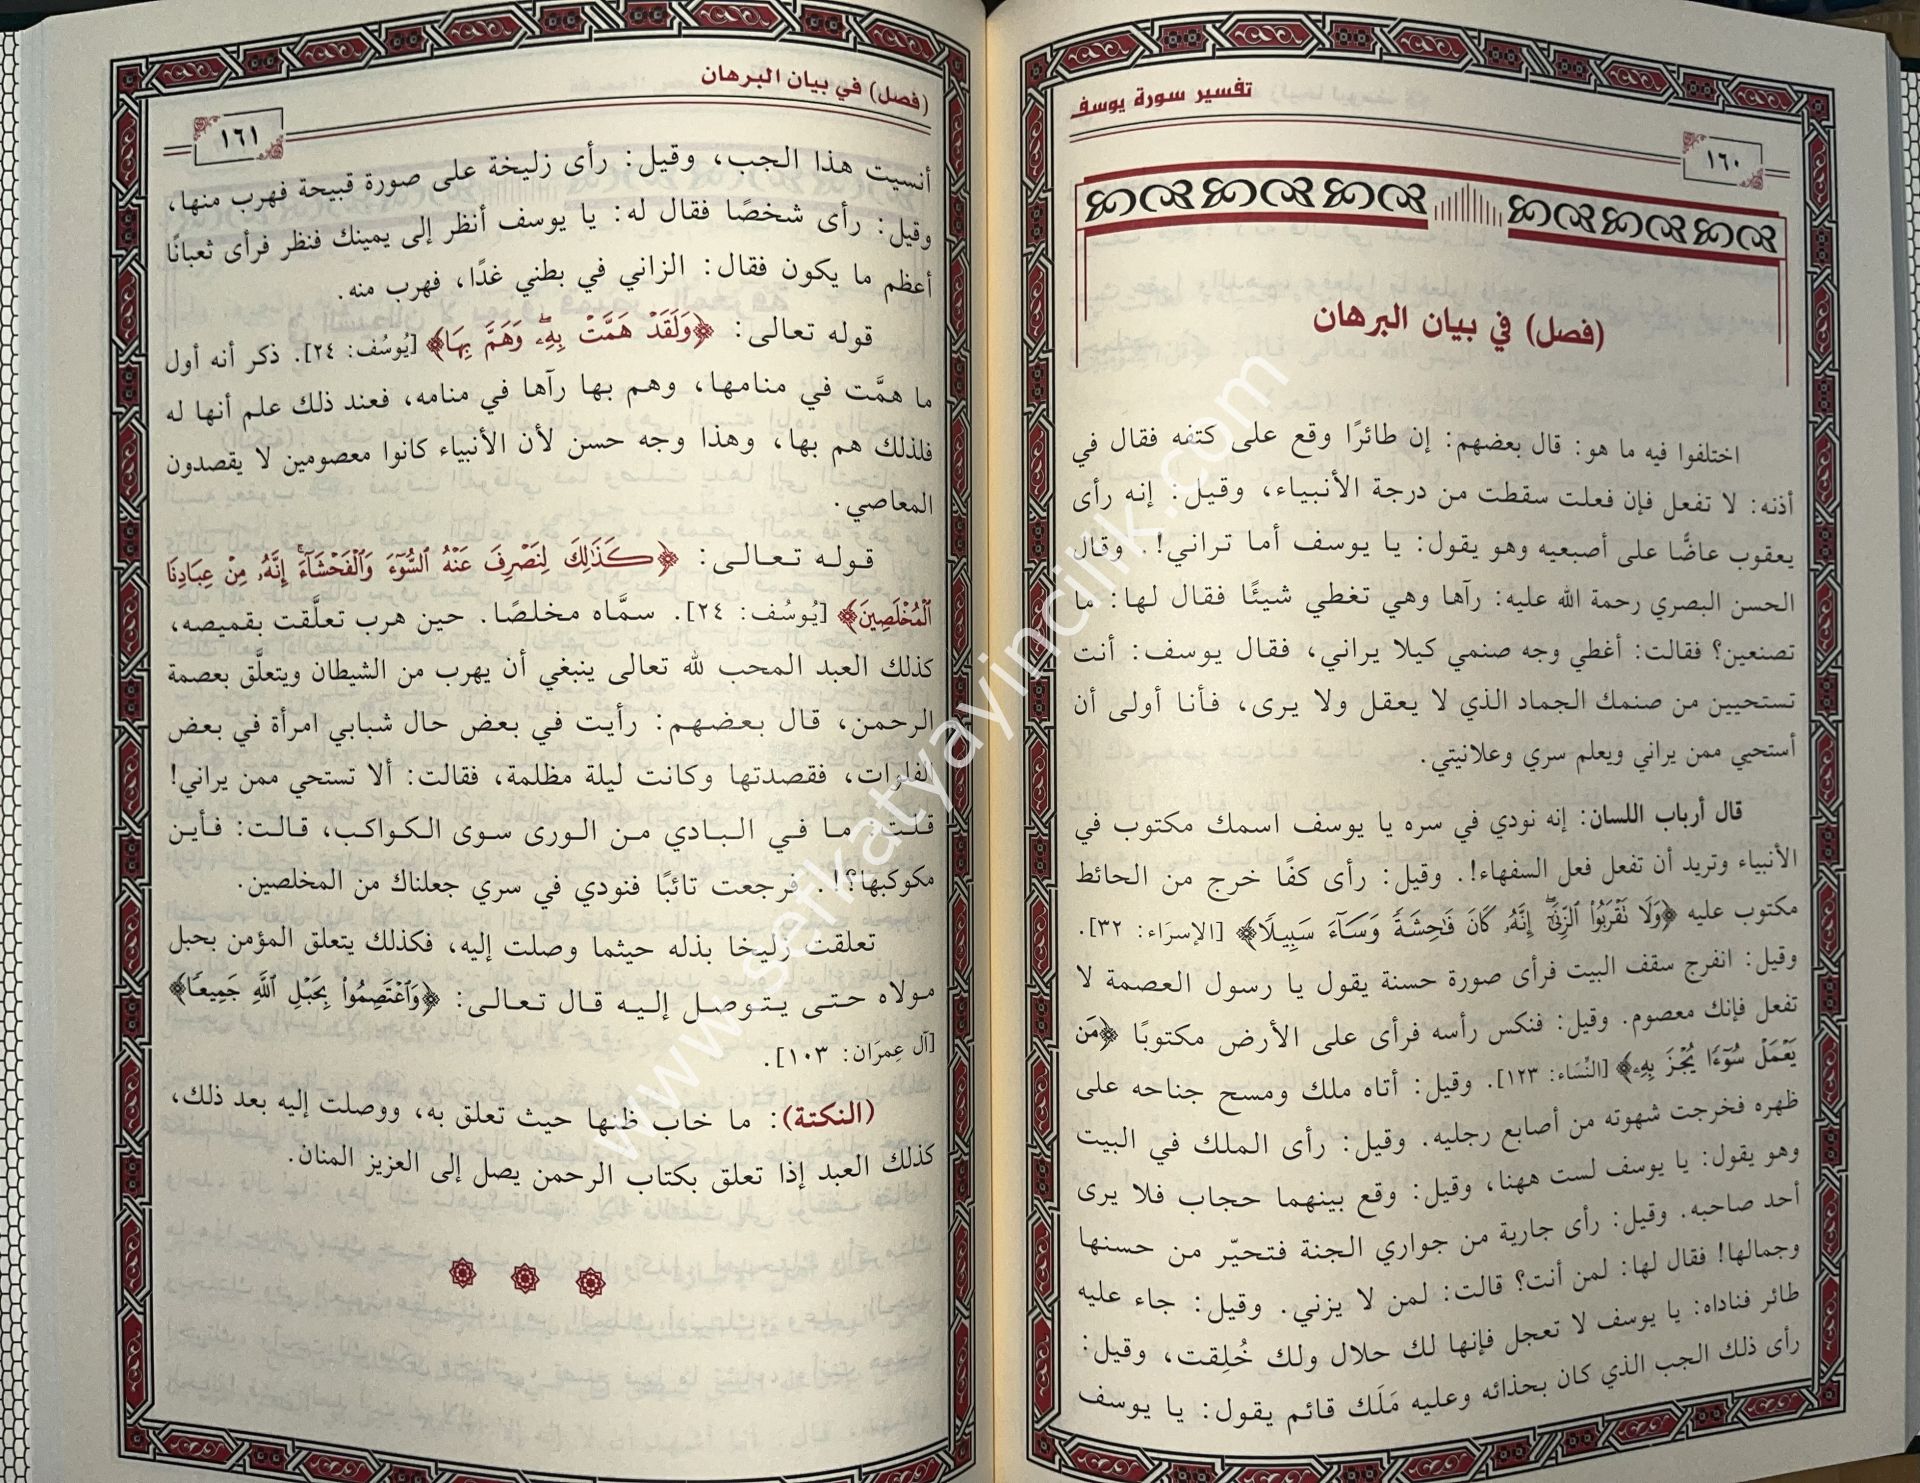 تفسير سورة يوسف
١٦٠
(فصل) في بيان البرهان
اختلفوا فيه ما هو: قال بعضهم: إن طائرًا وقع على كتفه فقال في
أذنه: لا تفعل فإن فعلت سقطت من درجة الأنبياء، وقيل: إنه رأى
يعقوب عاضًّا على أصبعيه وهو يقول: يا يوسف أما تراني! وقال
الحسن البصري رحمة الله عليه: رآها وهي تغطي شيئًا فقال لها: ما
تصنعين؟ فقالت: أغطي وجه صنمي كيلا يراني، فقال يوسف: أنت
تستحيين من صنمك الجماد الذي لا يعقل ولا يرى، فأنا أولى أن
أستحيي ممن يراني ويعلم سري وعلانيتي.
قال أرباب اللسان: إنه نودي في سره يا يوسف اسمك مكتوب في
الأنبياء وتريد أن تفعل فعل السفهاء!. وقيل: رأى كفًا خرج من الحائط
مكتوب عليه ﴿وَلَا تَقْرَبُوا۟ ٱلزِّنَىٰٓ إِنَّهُۥ كَانَ فَٰحِشَةً وَسَآءَ سَبِيلًا﴾ [الإسرَاء: ٣٢].
وقيل: انفرج سقف البيت فرأى صورة حسنة يقول يا رسول العصمة لا
تفعل فإنك معصوم. وقيل: فنكس رأسه فرأى على الأرض مكتوبًا ﴿مَن
يَعْمَلْ سُوٓءًا يُجْزَ بِهِۦ﴾ [النِّسَاء: ١٢٣]. وقيل: أتاه ملك ومسح جناحه على
ظهره فخرجت شهوته من أصابع رجليه. وقيل: رأى الملك في البيت
وهو يقول: يا يوسف لست ههنا، وقيل: وقع بينهما حجاب فلا يرى
أحد صاحبه. وقيل: رأى جارية من جواري الجنة فتحيّر من حسنها
وجمالها! فقال لها: لمن أنت؟ قالت: لمن لا يزني. وقيل: جاء عليه
طائر فناداه: يا يوسف لا تعجل فإنها لك حلال ولك خُلِقت، وقيل:
رأى ذلك الجب الذي كان بحذائه وعليه مَلَك قائم يقول: يا يوسف
(فصل) في بيان البرهان
١٦١
أنسيت هذا الجب، وقيل: رأى زليخة على صورة قبيحة فهرب منها،
وقيل: رأى شخصًا فقال له: يا يوسف أنظر إلى يمينك فنظر فرأى ثعبانًا
أعظم ما يكون فقال: الزاني في بطني غدًا، فهرب منه.
قوله تعالى: ﴿وَلَقَدْ هَمَّتْ بِهِۦ وَهَمَّ بِهَا﴾ [يُوسُف: ٢٤]. ذكر أنه أول
ما همَّت في منامها، وهم بها رآها في منامه، فعند ذلك علم أنها له
فلذلك هم بها، وهذا وجه حسن لأن الأنبياء كانوا معصومين لا يقصدون
المعاصي.
قوله تعالى: ﴿كَذَٰلِكَ لِنَصْرِفَ عَنْهُ ٱلسُّوٓءَ وَٱلْفَحْشَآءَ إِنَّهُۥ مِنْ عِبَادِنَا
ٱلْمُخْلَصِينَ﴾ [يُوسُف: ٢٤]. سمَّاه مخلصًا. حين هرب تعلَّقت بقميصه،
كذلك العبد المحب لله تعالى ينبغي أن يهرب من الشيطان ويتعلَّق بعصمة
الرحمن، قال بعضهم: رأيت في بعض حال شبابي امرأة في بعض
الفلوات، فقصدتها وكانت ليلة مظلمة، فقالت: ألا تستحي ممن يراني!
قلت: ما في البادي من الورى سوى الكواكب، قالت: فأين
مكوكبها؟!. فرجعت تائبًا فنودي في سري جعلناك من المخلصين.
تعلقت زليخا بذله حيثما وصلت إليه، فكذلك يتعلق المؤمن بحبل
مولاه حتى يتوصل إليه قال تعالى: ﴿وَٱعْتَصِمُوا۟ بِحَبْلِ ٱللَّهِ جَمِيعًا﴾
[آل عِمرَان: ١٠٣].
(النكتة): ما خاب ظنها حيث تعلق به، ووصلت إليه بعد ذلك،
كذلك العبد إذا تعلق بكتاب الرحمن يصل إلى العزيز المنان.
www.sefkatyayincilik.com